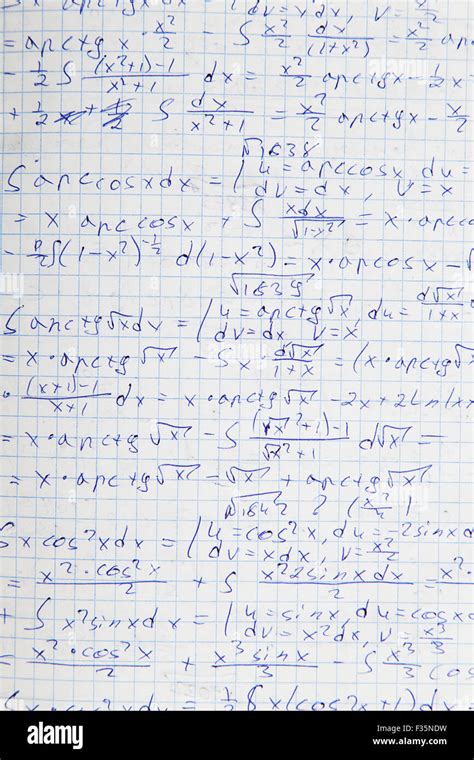 dv = xdx, V = x²/2
= arctg x · x²/2 − ∫ x²/2 dx/(1+x²) = x²/2 arc
− 1/2 ∫ ((x²+1)−1)/(x²+1) dx = x²/2 arctgx − 1/2 x
+ 1/2 ∫ dx/(x²+1) = x²/2 arctgx − x
√1638
∫ arccosxdx = ( u = arccosx, du =
dv = dx, V = x
= x arccosx + ∫ xdx/√(1−x²) = x · arcco
∫(1−x²)^(−1/2) d(1−x²) = x · arcosx − √
√1639
∫ arctg√x dx = ( u = arctg√x, du = d√x/(1+x)
dv = dx V = x
= x · arctg√x − ∫ x · d√x/(1+x) = (x · arctg√x
· ((x+1)−1)/(x+1) dx = x · arctg√x − 2x + 2Ln
= x · arctg√x − ∫ ((√x²+1)−1)/(√x²+1) d√x =
= x · arctg√x − √x + arctg√x
√1642 ? (x²/2)
∫ xcos²xdx = ( u = cos²x, du = −2sinx
dv = xdx, V = x²/2
= x²·cos²x/2 + ∫ x²2sinxdx/2 = x²·
+ ∫ x²sinxdx = ( u = sinx, du = cosx
dv = x²dx, V = x³/3
= x²·cos²x/2 + x³sinx/3 − ∫ x³/3 cos
= 1/2 ∫ x(cos2x+1)dx
alamy
Image ID: F35NDW
www.alamy.com